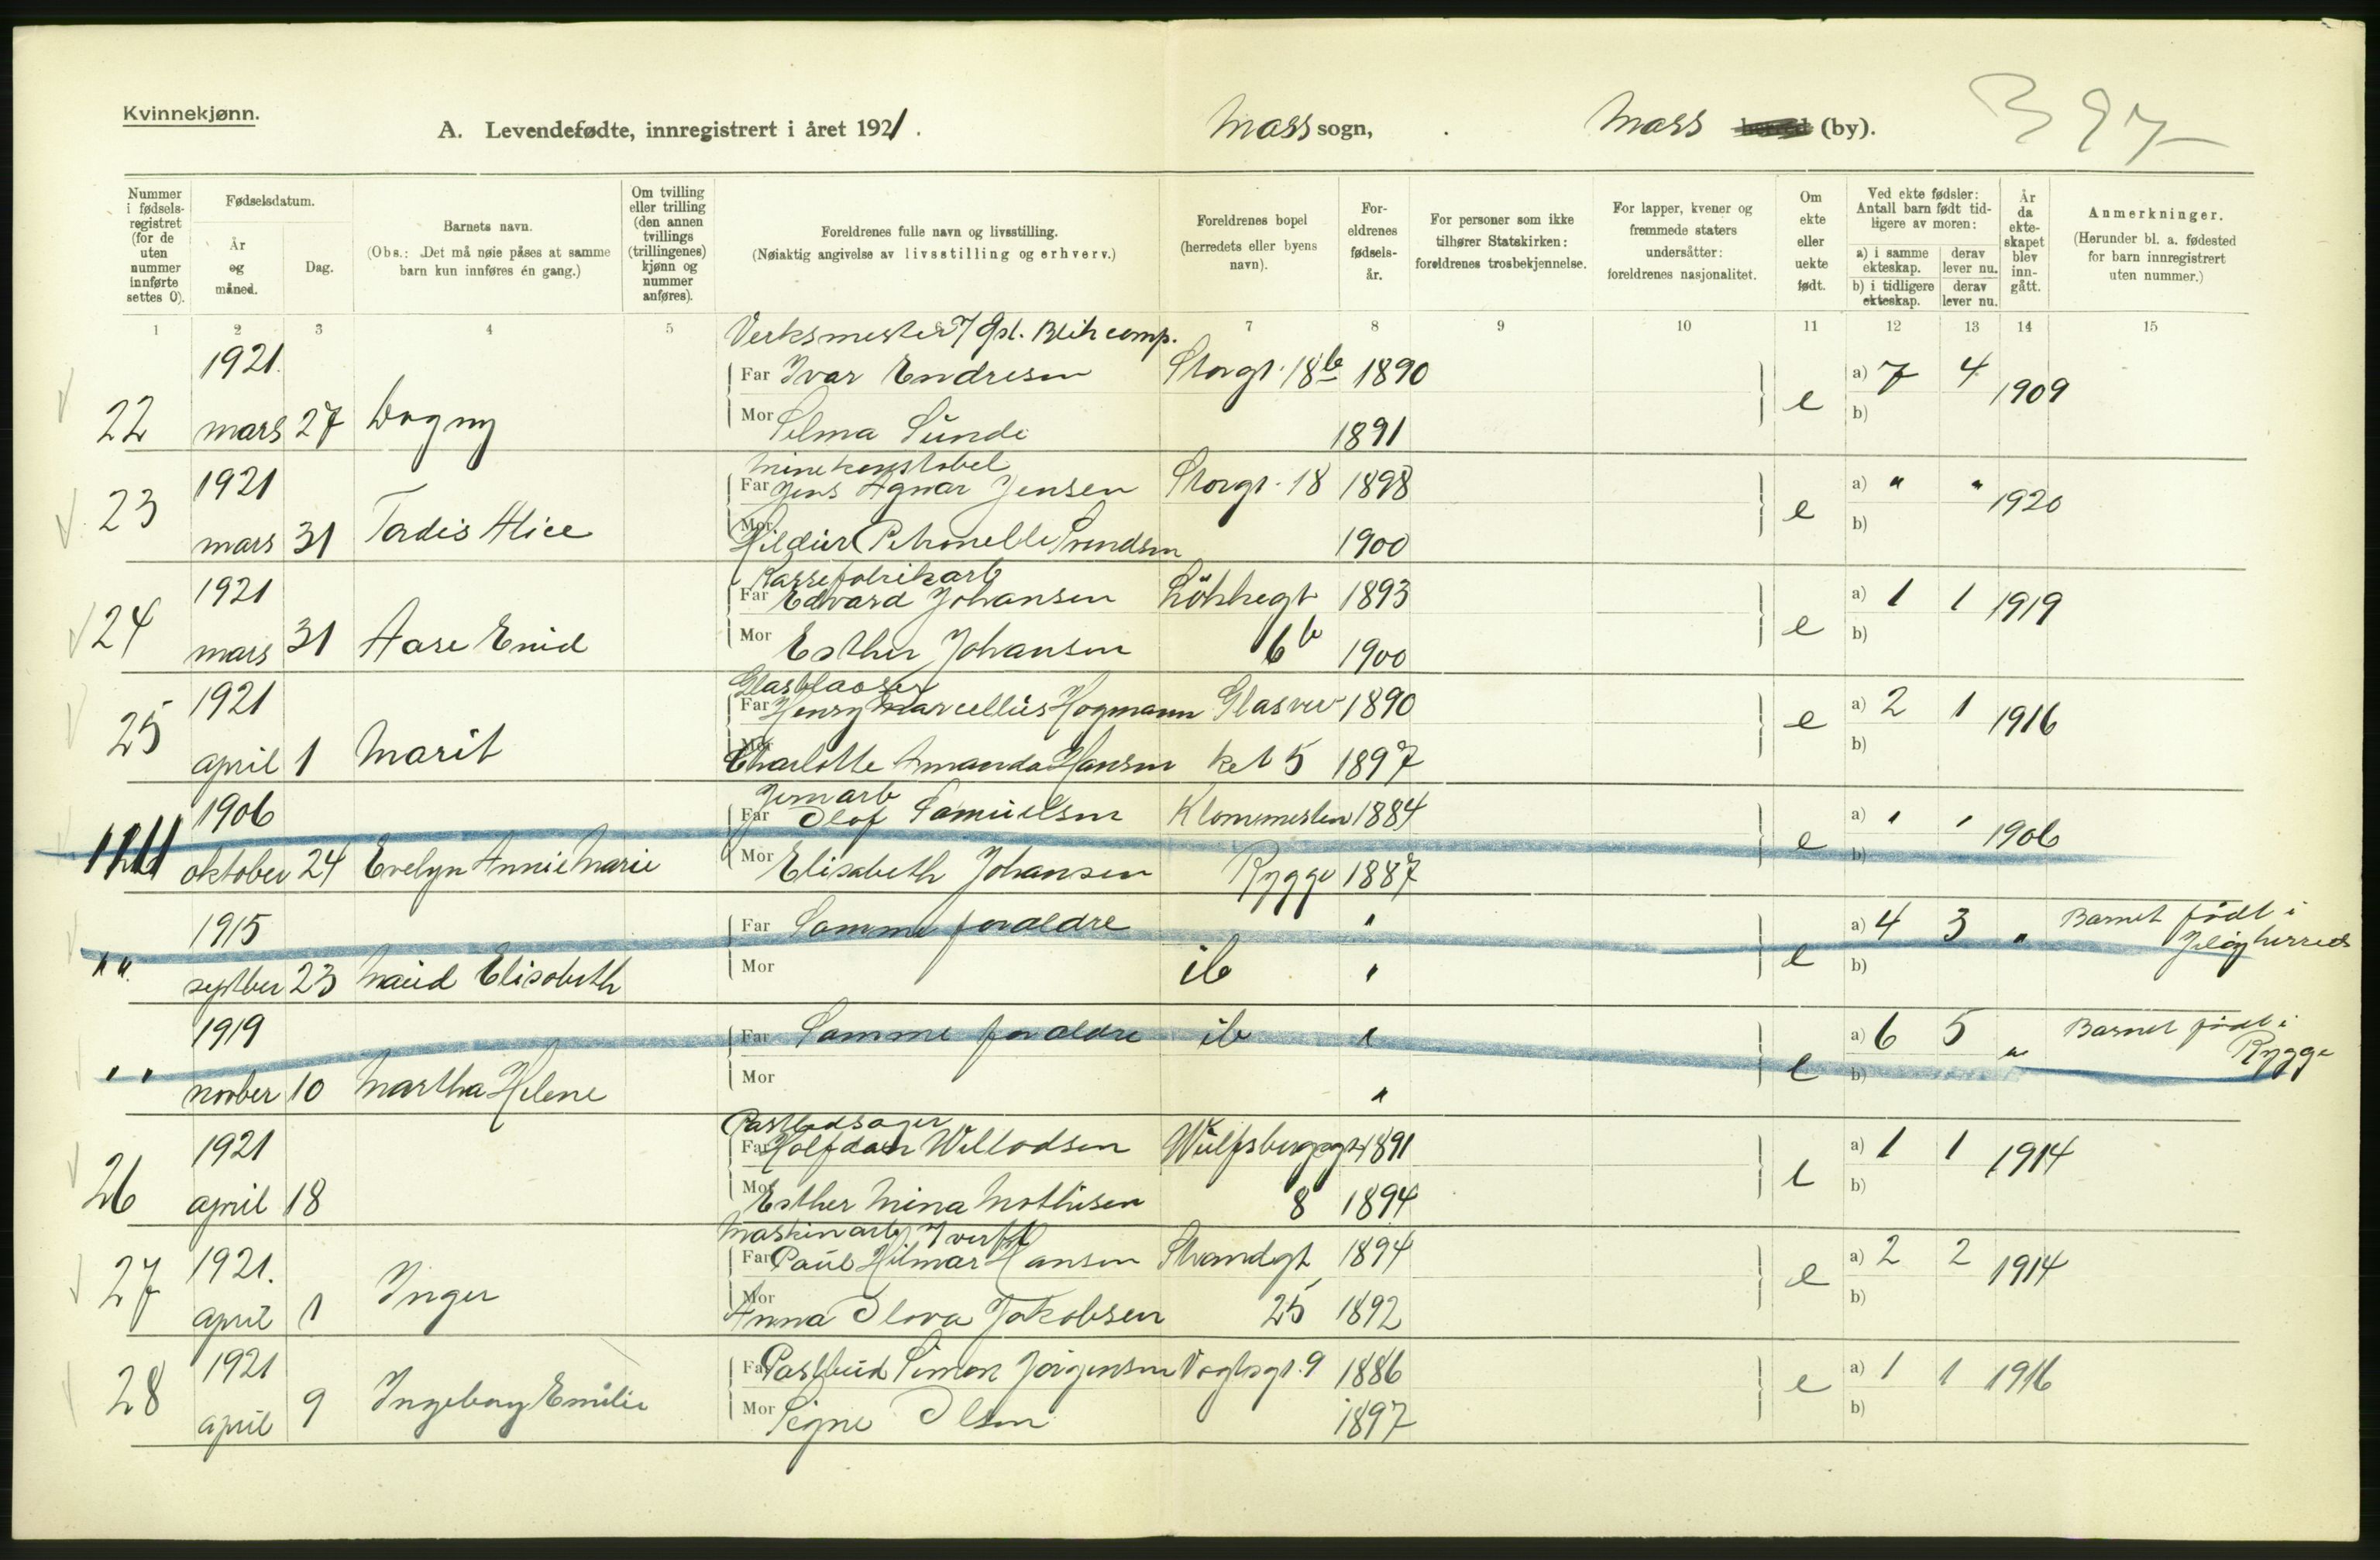 Kvinnekjønn.
A. Levendefødte, innregistrert i året 1921.
Moss sogn, Moss herred (by).
Nummer i fødselsregistret (for de uten nummer innførte settes 0).
Fødselsdatum.
År og måned.
Dag.
Barnets navn.
(Obs.: Det må nøie påses at samme barn kun innføres én gang.)
Om tvilling eller trilling (den annen tvillings (trillingenes) kjønn og nummer anføres).
Foreldrenes fulle navn og livsstilling.
(Nøiaktig angivelse av livsstilling og erhverv.)
Foreldrenes bopel (herredets eller byens navn).
Foreldrenes fødselsår.
For personer som ikke tilhører Statskirken: foreldrenes trosbekjennelse.
For lapper, kvener og fremmede staters undersåtter: foreldrenes nasjonalitet.
Om ekte eller uekte født.
Ved ekte fødsler: Antall barn født tidligere av moren:
a) i samme ekteskap. derav lever nu.
b) i tidligere ekteskap. derav lever nu.
År da ekteskapet blev inngått.
Anmerkninger.
(Herunder bl. a. fødested for barn innregistrert uten nummer.)
1 2 3 4 5 7 8 9 10 11 12 13 14 15
Verksmester
1921. Far Ivar Endresen Storgt. 18b 1890 a) 7 4 1909
22 mars 27 Dagny Mor Selma Sunde 1891 e b)
Minekonstabel
1921 Far Jens Agnar Jensen Storgt. 18 1898 a) " " 1920
23 mars 31 Tordis Alice Mor Hildur Petronelle Svendsen 1900 e b)
1921 Far Edvard Johansen 1893 a) 1 1 1919
24 mars 31 Aase Enid Mor Esther Johansen 6b 1900 e b)
Glasblaaser
1921 Far Henry Marcellius Hogmann Glasver 1890 a) 2 1 1916
25 april 1 Marit Mor Charlotte Amanda Hansen ket 5 1897 e b)
Jernarb
1906 Far Olof Samuelsen 1884 a) " " 1906
oktober 24 Evelyn Annie Marie Mor Elisabeth Johansen Rygge 1887 e b)
1915 Far Samme foraldre " a) 4 3 " Barnet født i
" " septber 23 Maud Elisabeth Mor ib " e b) Jeløy herred
1919 Far Samme foraldre ib " a) 6 5 " Barnet født i
" " novber 10 Martha Helene Mor " e b) Rygge
1921 Far Halfdan Willodsen Wulfsbergsgt 1891 a) 1 1 1914
26 april 18 Mor Esther Mina Mathisen 8 1894 e b)
Maskinarb.
1921. Far Paul Hilmar Hansen Strandgt 1894 a) 2 2 1914
27 april 1 Inger Mor Anna Olava Jakobsen 25 1892 e b)
1921 Far Postbud Simon Jørgensen Vogtsgt. 9 1886 a) 1 1 1916
28 april 9 Ingeborg Emilie Mor Signe Olsen 1897 e b)